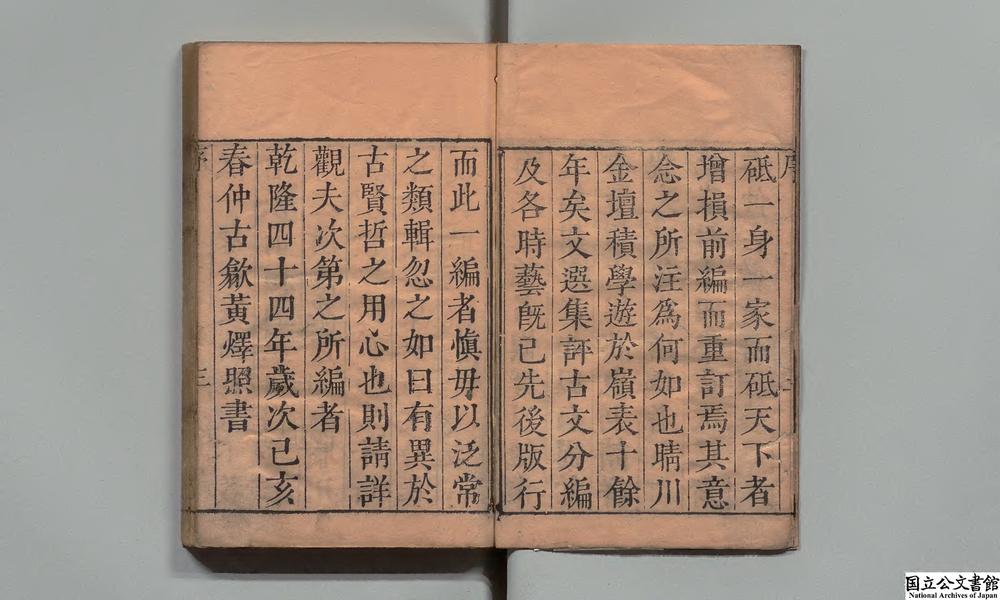 序
砥一身一家而砥天下者
增損前編而重訂焉其意
念之所注爲何如也晴川
金壇積學遊於嶺表十餘
年矣文選集評古文分編
及各時藝旣已先後版行
而此一編者愼毋以泛常
之類輯忽之如曰有異於
古賢哲之用心也則請詳
觀夫次第之所編者
乾隆四十四年歲次己亥
春仲古歙黃燡照書
序 三
国立公文書館
National Archives of Japan